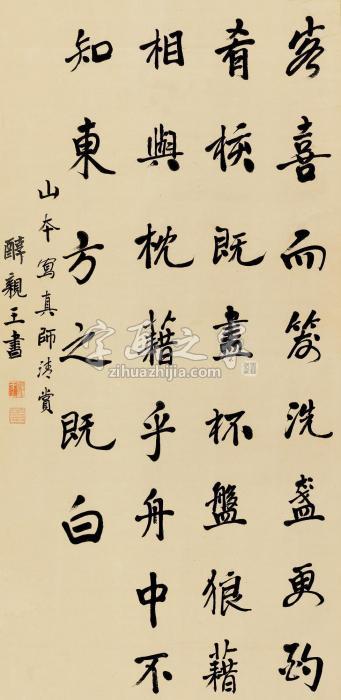 客喜而笑洗盞更酌
肴核既盡杯盤狼藉
相與枕藉乎舟中不
知東方之既白
山本寫真師清賞
醇親王書
字画之家
zihuazhijia.com